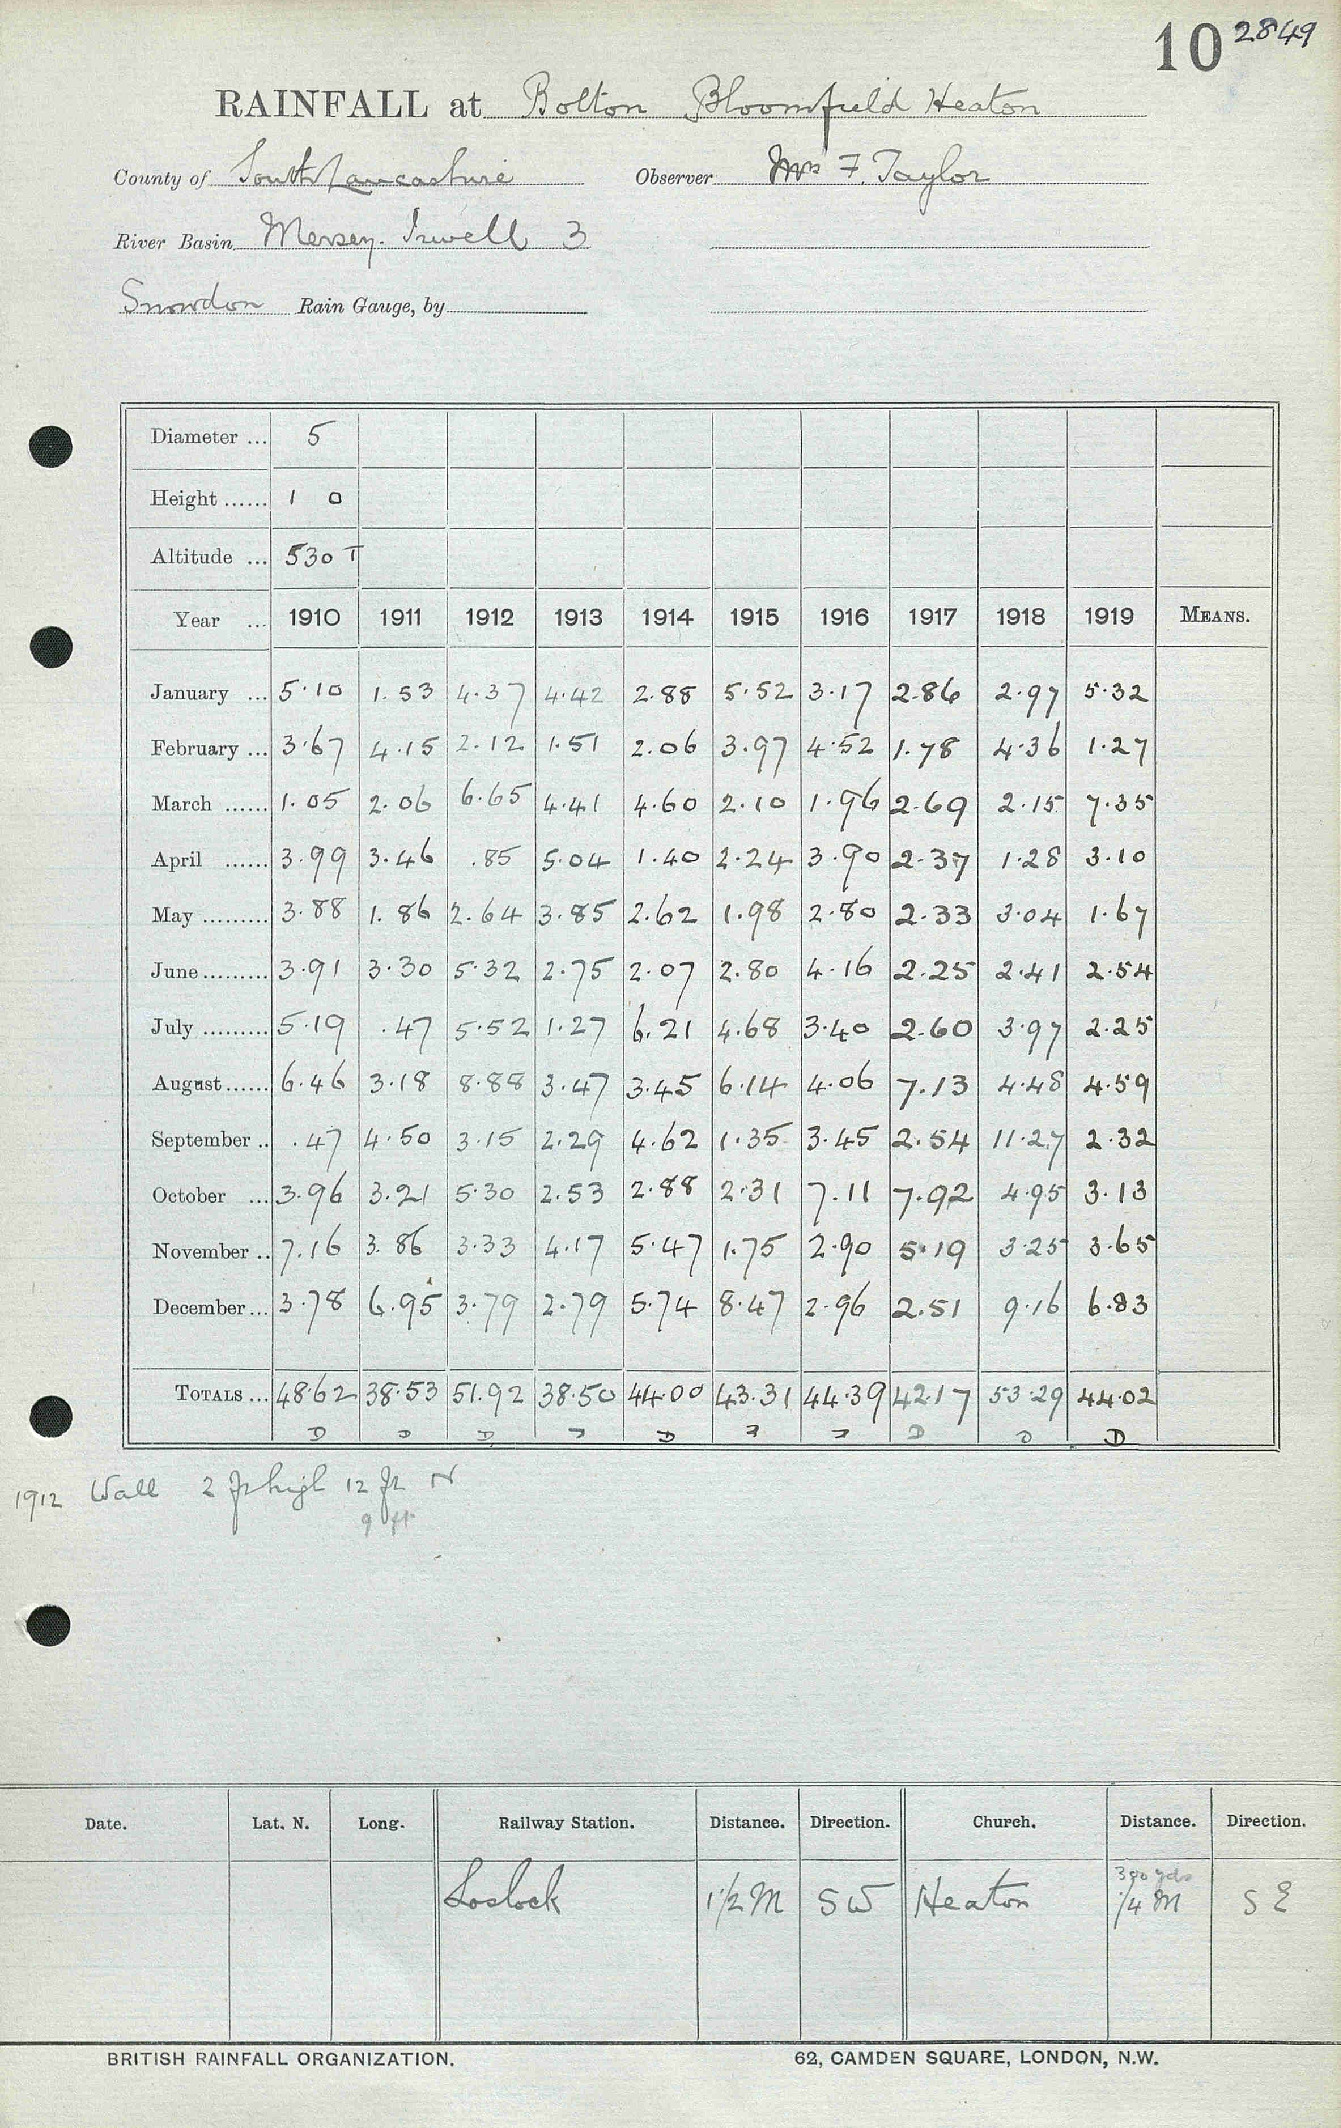 10 2849
RAINFALL at Bolton Bloomfield Heaton
County of South Lancashire Observer Mrs F. Taylor
River Basin Mersey. Irwell 3
Snowdon Rain Gauge, by
Diameter ... 5
Height ...... 1 0
Altitude ... 530 T
Year ... 1910 1911 1912 1913 1914 1915 1916 1917 1918 1919 MEANS.
January ... 5.10 1.53 4.37 4.42 2.88 5.52 3.17 2.86 2.97 5.32
February ... 3.67 4.15 2.12 1.51 2.06 3.97 4.52 1.78 4.36 1.27
March ...... 1.05 2.06 6.65 4.41 4.60 2.10 1.96 2.69 2.15 7.35
April ...... 3.99 3.46 .85 5.04 1.40 2.24 3.90 2.37 1.28 3.10
May ......... 3.88 1.86 2.64 3.85 2.62 1.98 2.80 2.33 3.04 1.67
June ......... 3.91 3.30 5.32 2.75 2.07 2.80 4.16 2.25 2.41 2.54
July ......... 5.19 .47 5.52 1.27 6.21 4.68 3.40 2.60 3.97 2.25
August ...... 6.46 3.18 8.88 3.47 3.45 6.14 4.06 7.13 4.48 4.59
September .. .47 4.50 3.15 2.29 4.62 1.35 3.45 2.54 11.27 2.32
October ... 3.96 3.21 5.30 2.53 2.88 2.31 7.11 7.92 4.95 3.13
November .. 7.16 3.86 3.33 4.17 5.47 1.75 2.90 5.19 3.25 3.65
December ... 3.78 6.95 3.79 2.79 5.74 8.47 2.96 2.51 9.16 6.83
TOTALS ... 48.62 38.53 51.92 38.50 44.00 43.31 44.39 42.17 53.29 44.02
D D D D D D D
1912 Wall 2 ft high 12 ft N
9 ft
Date. Lat. N. Long. Railway Station. Distance. Direction. Church. Distance. Direction.
300 yds
Lostock 1 1/2 M SW Heaton 1/4 M S E
BRITISH RAINFALL ORGANIZATION. 62, CAMDEN SQUARE, LONDON, N.W.